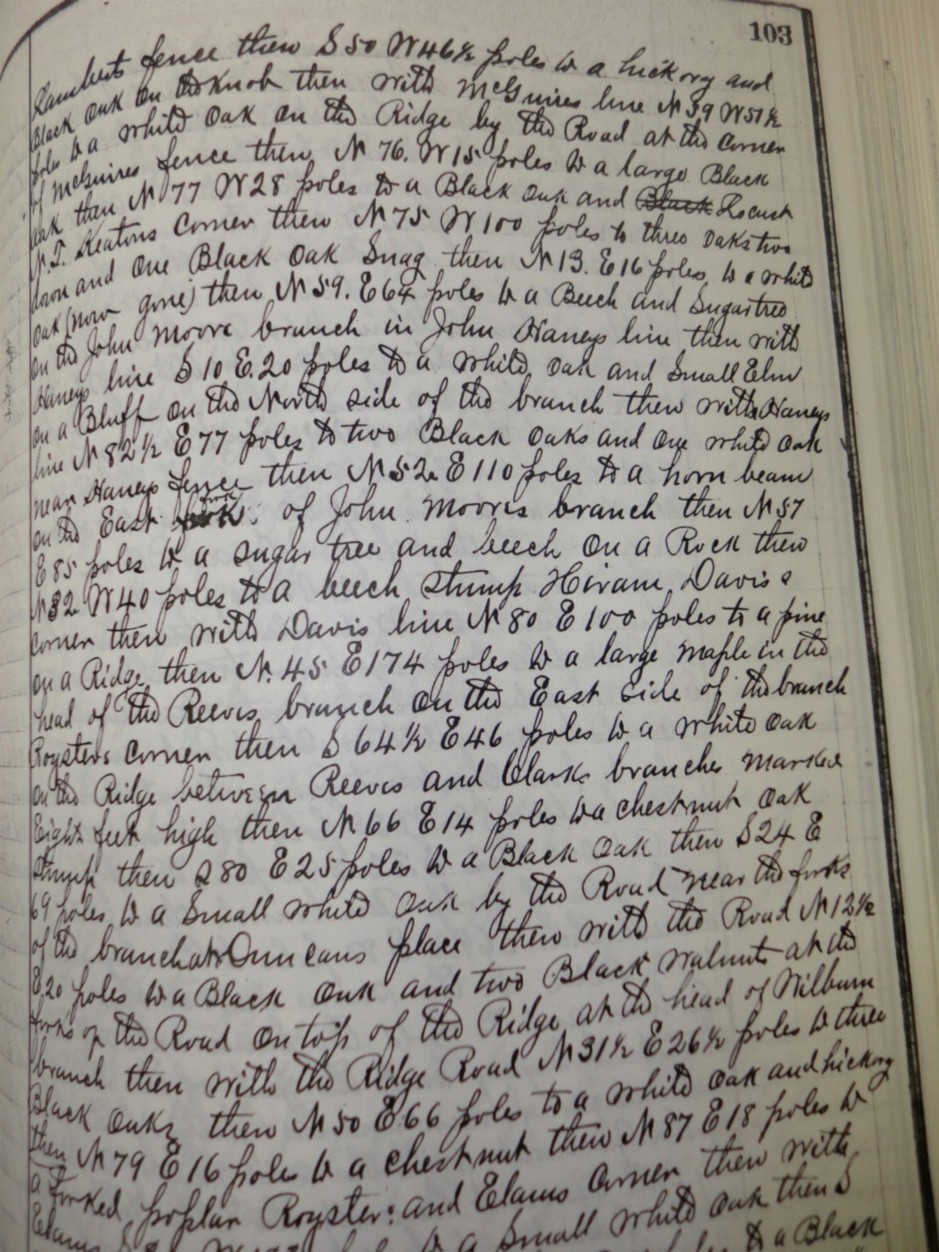 103
Lamberts fence then S 50 W 46½ poles to a hickory and
Black Oak on the Knob then with McGuires line N 39 W 51½
poles to a white Oak on the Ridge by the Road at the Corner
of McGuires fence then N 76. W 15 poles to a large Black
oak then N 77 W 28 poles to a Black Oak and Black Locust
Keatons Corner then N 75 W 100 poles to three oaks two
down and One Black Oak Snag then N 13. E 16 poles to a white
Oak (now gone) then N 59. E 64 poles to a Beech and Sugar tree
on the John Moore branch in John Haneys line then with
Haneys line S 10 E. 20 poles to a white oak and Small Elm
on a Bluff on the North side of the branch then with Haneys
line N 82½ E 77 poles to two Black Oaks and one white oak
near Haneys fence then N 52 E 110 poles to a horn beam
on the East fork of John Moores branch then N 57
E 85 poles to a sugar tree and beech on a Rock then
N 32 W 40 poles to a beech stump Hiram Davis s
corner then with Davis line N 80 E 100 poles to a pine
on a Ridge, then N. 45 E 174 poles to a large maple in the
head of the Reeves branch on the East side of the branch
Roysters corner then S 64½ E 46 poles to a white oak
on the Ridge between Reeves and Clarks branches marked
Eight feet high then N 66 E 14 poles to a chestnut oak
Stump then S 80 E 25 poles to a Black Oak then S 24 E
69 poles to a Small white Oak by the Road near the forks
of the branch at Duncans place then with the Road N 12½
E 20 poles to a Black Oak and two Black walnuts at the
forks of the Road on top of the Ridge at the head of Wilburn
branch then with the Ridge Road N 31½ E 26½ poles to three
Black Oaks then N 50 E 66 poles to a white oak and hickory
then N 79 E 16 poles to a chestnut then N 87 E 18 poles to
a forked poplar Royster: and Elams Corner then with
Elams to a Small white Oak then S
to a Black